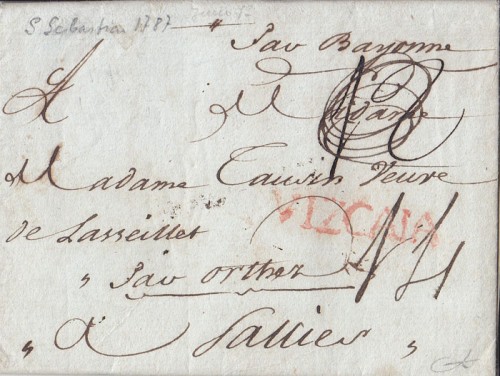 S Sebastian 1787
Pav Bayonne
A Madame
Madame Tauvin Veuve
de Lasseillet
VIZCAJA
" Pav orthez
" a Sallies "